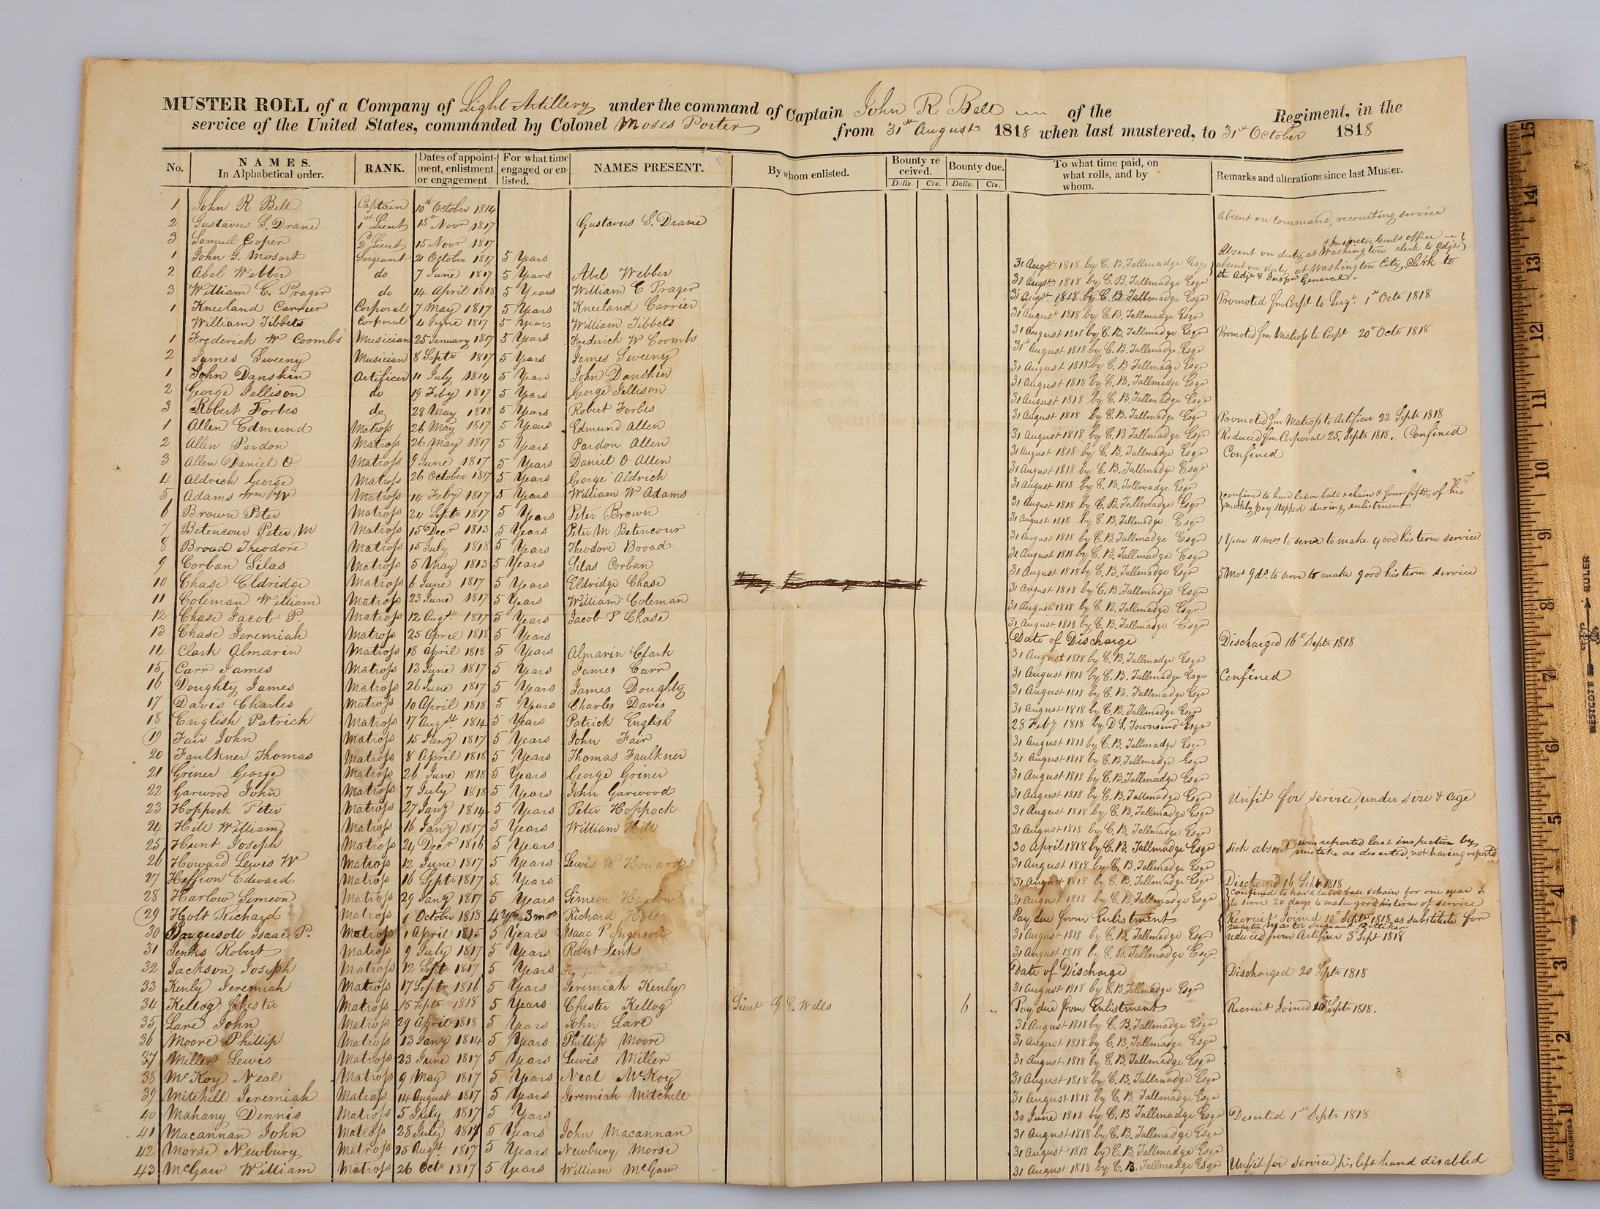 MUSTER ROLL of a Company of Light Artillery under the command of Captain John R Bell of the Regiment, in the
service of the United States, commanded by Colonel Moses Porter from 31st August 1818 when last mustered, to 31st October 1818
No. NAMES. In Alphabetical order. RANK. Dates of appointment, enlistment or engagement For what time engaged or enlisted. NAMES PRESENT. By whom enlisted. Bounty received. Dolls. Cts. Bounty due. Dolls. Cts. To what time paid, on what rolls, and by whom. Remarks and alterations since last Muster.
1 John R Bell Captain 10th October 1814 Absent on command, recruiting service
2 Gustavus S. Drane 1st Lieut 15th Novr 1817 Gustavus S. Drane
3 Samuel Cooper 2d Lieut 15 Novr 1817 Absent on duty at Washington clerk to Adjt
1 John S. Mosart Sergeant 21 October 1817 5 Years 31 Augt 1818 by C. B. Tallmadge Esqr absent on duty at Washington City, Clerk to the Adjt & Inspr General.
2 Abel Webber do 7 June 1817 5 Years Abel Webber 31 August 1818 by C. B. Tallmadge Esqr
3 William C. Prager do 14 April 1818 5 Years William C Prager 31 Augst 1818 by C. B. Tallmadge Esqr Promoted fm Corpl to Sergt. 1st Octr 1818
1 Kneeland Carrier Corporal 7 May 1817 5 Years Kneeland Carrier 31 August 1818 by C. B. Tallmadge Esqr
William Tibbets Corporal 4 June 1817 5 Years William Tibbets 31 August 1818 by C. B. Tallmadge Esqr Promoted fm Matross to Corpl 20th Octr 1818
1 Frederick W Coombs Musician 25 January 1817 5 Years Frederick W Coombs 31st August 1818 by C. B. Tallmadge Esqr
2 James Sweeny Musician 8 Septr 1817 5 Years James Sweeny 31 August 1818 by C. B. Tallmadge Esqr
1 John Danskin Artificer 11 July 1814 5 Years John Danskin 31 August 1818 by C. B. Tallmadge Esqr
2 George Jellison do 19 Feby 1817 5 Years George Jellison 31 August 1818 by C. B. Tallmadge Esqr
3 Robert Forbes do 28 May 1818 5 Years Robert Forbes 31 August 1818 by C. B. Tallmadge Esqr Promoted fm Matross to Artificer 22 Septr 1818
1 Allen Edmund Matross 26 May 1817 5 Years Edmund Allen 31 August 1818 by C. B. Tallmadge Esqr Reduced fm Corporal 25 Septr 1818. Confined
2 Allen Pardon Matross 26 May 1817 5 Years Pardon Allen 31 August 1818 by C. B. Tallmadge Esqr Confined
3 Allen Daniel O Matross 9 June 1817 5 Years Daniel O Allen 31 August 1818 by C. B. Tallmadge Esqr
4 Aldrich George Matross 26 October 1817 5 Years George Aldrich 31 August 1818 by C. B. Tallmadge Esqr
5 Adams Wm W Matross 14 Feby 1817 5 Years William W Adams 31 August 1818 by C. B. Tallmadge Esqr confined to hard labor ball & chain & four fifths of his monthly pay stopped during enlistment
6 Brown Peter Matross 24 Septr 1817 5 Years Peter Brown 31 August 1818 by C. B. Tallmadge Esqr
7 Betencour Peter M Matross 15 Decr 1813 5 Years Peter M Betencour 31 August 1818 by C. B. Tallmadge Esqr 1 Year 11 mos to serve to make good his term service
8 Broad Theodore Matross 15 July 1818 5 Years Theodore Broad 31 August 1818 by C. B. Tallmadge Esqr
9 Corban Silas Matross 5 May 1813 5 Years Silas Corban 31 August 1818 by C. B. Tallmadge Esqr 5 Mos 9 ds. to serve to make good his term service
10 Chase Eldridge Matross 6 June 1817 5 Years Eldridge Chase 31 August 1818 by C. B. Tallmadge Esqr
11 Coleman William Matross 23 June 1817 5 Years William Coleman 31 August 1818 by C. B. Tallmadge Esqr
12 Chase Jacob P. Matross 12 Augt. 1817 5 Years Jacob P Chase 31 August 1818 by C. B. Tallmadge Esqr
13 Chase Jeremiah Matross 25 April 1818 5 Years Date of Discharge Discharged 16th Septr 1818
14 Clark Almarin Matross 18 April 1818 5 Years Almarin Clark 31 August 1818 by C. B. Tallmadge Esqr
15 Carr James Matross 13 June 1817 5 Years James Carr 31 August 1818 by C. B. Tallmadge Esqr Confined
16 Doughty James Matross 26 June 1817 5 Years James Doughty 31 August 1818 by C. B. Tallmadge Esqr
17 Davis Charles Matross 10 April 1818 5 Years Charles Davis 31 August 1818 by C. B. Tallmadge Esqr
18 English Patrick Matross 17 Augst 1814 5 Years Patrick English 28 Feby 1818 by D. S. Townsend Esqr
19 Fair John Matross 15 Jany 1817 5 Years John Fair 31 August 1818 by C. B. Tallmadge Esqr
20 Faulkner Thomas Matross 8 April 1818 5 Years Thomas Faulkner 31 August 1818 by C. B. Tallmadge Esqr
21 Griner George Matross 26 June 1818 5 Years George Griner 31 August 1818 by C. B. Tallmadge Esqr
22 Garwood John Matross 7 July 1818 5 Years John Garwood 31 August 1818 by C. B. Tallmadge Esqr Unfit for service, under size & age
23 Hoppock Peter Matross 27 Jany 1814 5 Years Peter Hoppock 31 August 1818 by C. B. Tallmadge Esqr
24 Hill William Matross 16 Jany 1817 5 Years William Hill 31 August 1818 by C. B. Tallmadge Esqr
25 Hunt Joseph Matross 24 Decr 1816 5 Years 30 April 1818 by C. B. Tallmadge Esqr sick absent was reported last inspection by mistake as deserted, not having reported
26 Howard Lewis W Matross 12 June 1817 5 Years Lewis W Howard 31 August 1818 by C. B. Tallmadge Esqr
27 Heffron Edward Matross 16 Septr 1817 5 Years 31 August 1818 by C. B. Tallmadge Esqr Discharged 16 Septr 1818
28 Harlow Simeon Matross 29 Jany 1817 5 Years Simeon Harlow 31 August 1818 by C. B. Tallmadge Esqr confined to hard labor ball & chain for one year & to serve 20 days to make good his term of service
29 Holt Richard Matross 1 October 1818 4 Yrs 3 mos Richard Holt Pay due from Enlistment Recruit Joined 10 Septr 1818 as substitute for Quarter Master Sergeant
30 Ingersoll Isaac P. Matross 1 April 1815 5 Years Isaac P Ingersoll 31 August 1818 by C. B. Tallmadge Esqr reduced from Artificer 3 Sept 1818
31 Jenks Robert Matross 9 July 1817 5 Years Robert Jenks 31 August 1818 by C. B. Tallmadge Esqr
32 Jackson Joseph Matross 12 Septr 1817 5 Years Date of Discharge Discharged 20 Septr 1818
33 Kenly Jeremiah Matross 17 Septr 1816 5 Years Jeremiah Kenly 31 August 1818 by C. B. Tallmadge Esqr
34 Kellog Chester Matross 15 Septr 1818 5 Years Chester Kellog Lieut G. C. Wells 6 Pay due from Enlistment Recruit Joined 15th Sept 1818.
35 Lare John Matross 29 April 1818 5 Years John Lare 31 August 1818 by C. B. Tallmadge Esqr
36 Moore Phillip Matross 13 Jany 1814 5 Years Phillip Moore 31 August 1818 by C. B. Tallmadge Esqr
37 Miller Lewis Matross 23 June 1817 5 Years Lewis Miller 31 August 1818 by C. B. Tallmadge Esqr
38 McKoy Neal Matross 9 May 1817 5 Years Neal McKoy 31 August 1818 by C. B. Tallmadge Esqr
39 Mitchell Jeremiah Matross 14 August 1817 5 Years Jeremiah Mitchell 31 August 1818 by C. B. Tallmadge Esqr
40 Mahany Dennis Matross 5 July 1817 5 Years 30 June 1818 by C. B. Tallmadge Esqr Deserted 1st Septr 1818
41 Macannan John Matross 28 July 1817 5 Years John Macannan 31 August 1818 by C. B. Tallmadge Esqr
42 Morse Newbury Matross 25 Augst 1817 5 Years Newbury Morse 31 August 1818 by C. B. Tallmadge Esqr
43 McGaw William Matross 26 Octr 1817 5 Years William McGaw 31 August 1818 by C. B. Tallmadge Esqr Unfit for service, his left hand disabled
15 14 13 12 11 10 9 8 7 6 5 4 3 2 1
RULER
WESTCOTT